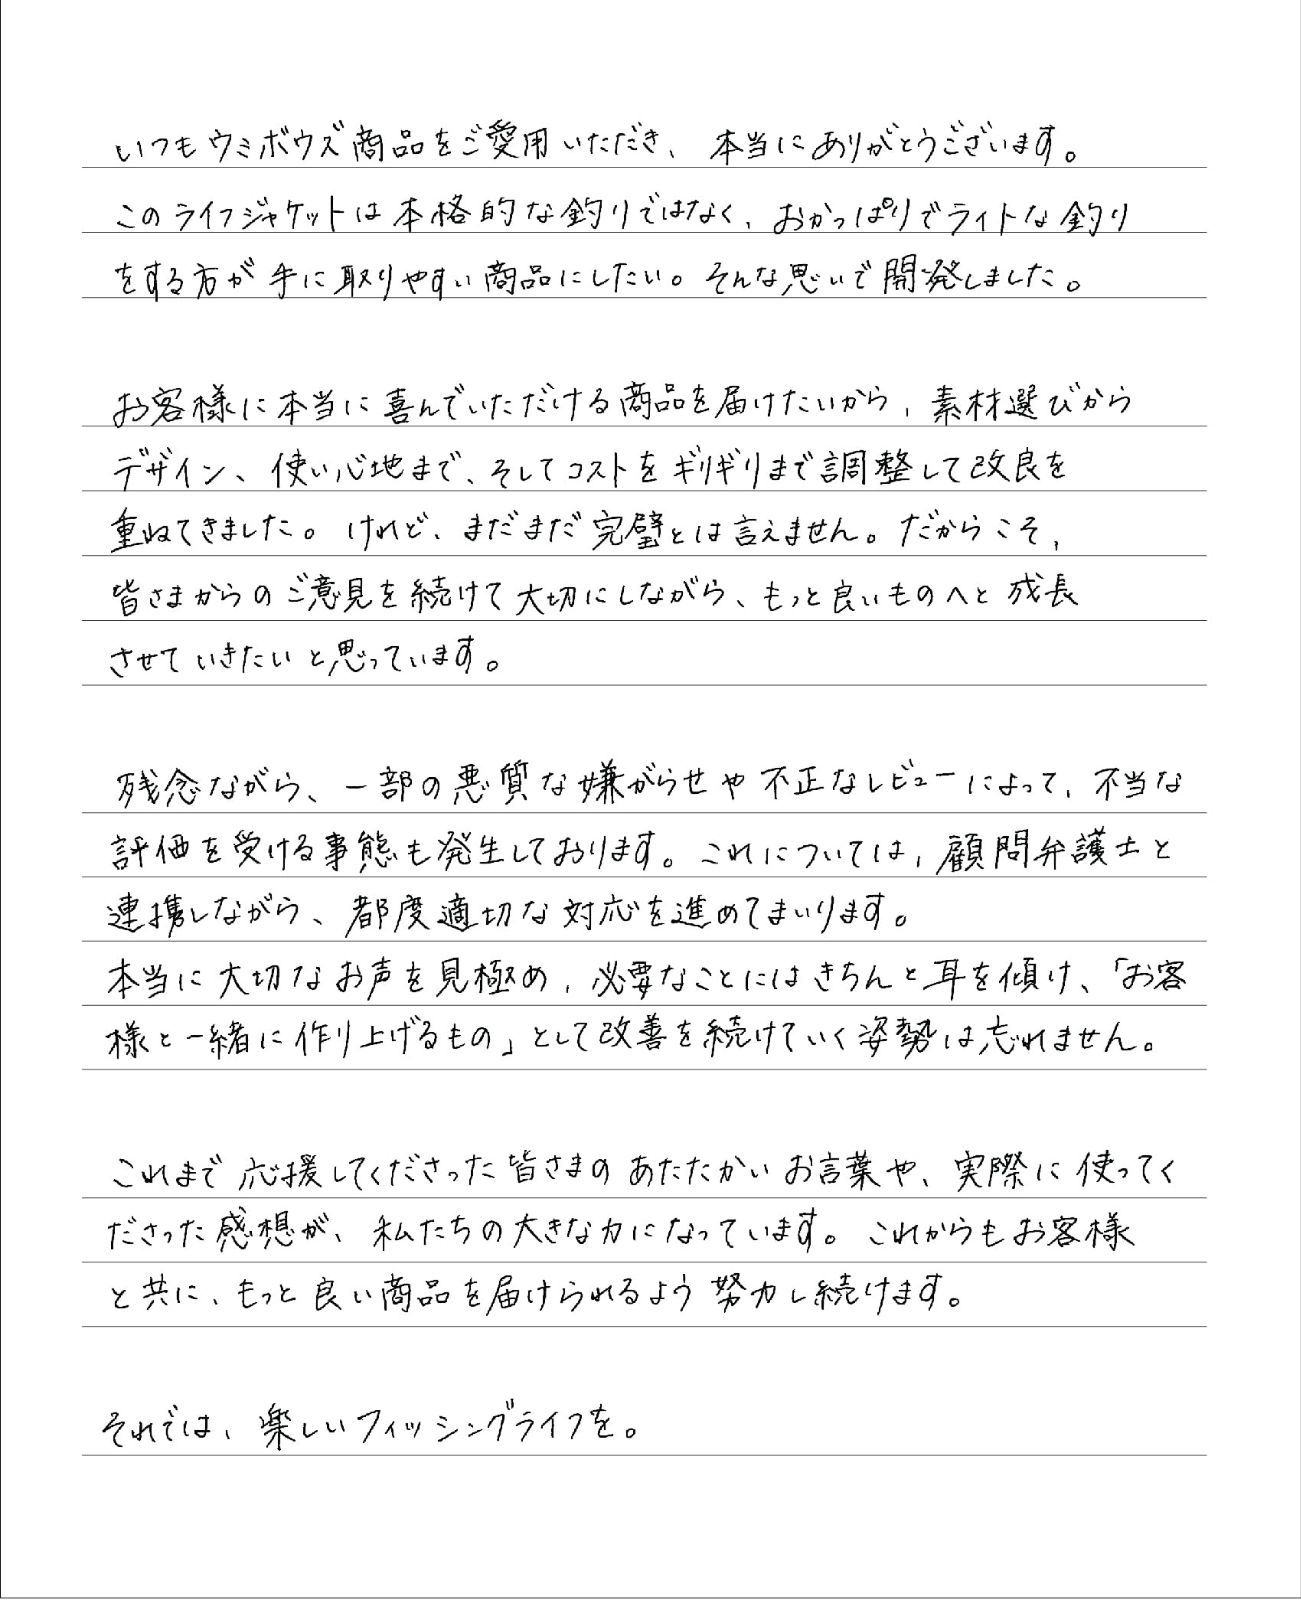 いつもウミボウズ商品をご愛用いただき、本当にありがとうございます。
このライフジャケットは本格的な釣りではなく、おかっぱりでライトな釣り
をする方が手に取りやすい商品にしたい。そんな思いで開発しました。
お客様に本当に喜んでいただける商品を届けたいから、素材選びから
デザイン、使い心地まで、そしてコストをギリギリまで調整して改良を
重ねてきました。けれど、まだまだ完璧とは言えません。だからこそ、
皆さまからのご意見を続けて大切にしながら、もっと良いものへと成長
させていきたいと思っています。
残念ながら、一部の悪質な嫌がらせや不正なレビューによって、不当な
評価を受ける事態も発生しております。これについては、顧問弁護士と
連携しながら、都度適切な対応を進めてまいります。
本当に大切なお声を見極め、必要なことにはきちんと耳を傾け、「お客
様と一緒に作り上げるもの」として改善を続けていく姿勢は忘れません。
これまで応援してくださった皆さまのあたたかいお言葉や、実際に使ってく
ださった感想が、私たちの大きな力になっています。これからもお客様
と共に、もっと良い商品を届けられるよう努力し続けます。
それでは、楽しいフィッシングライフを。